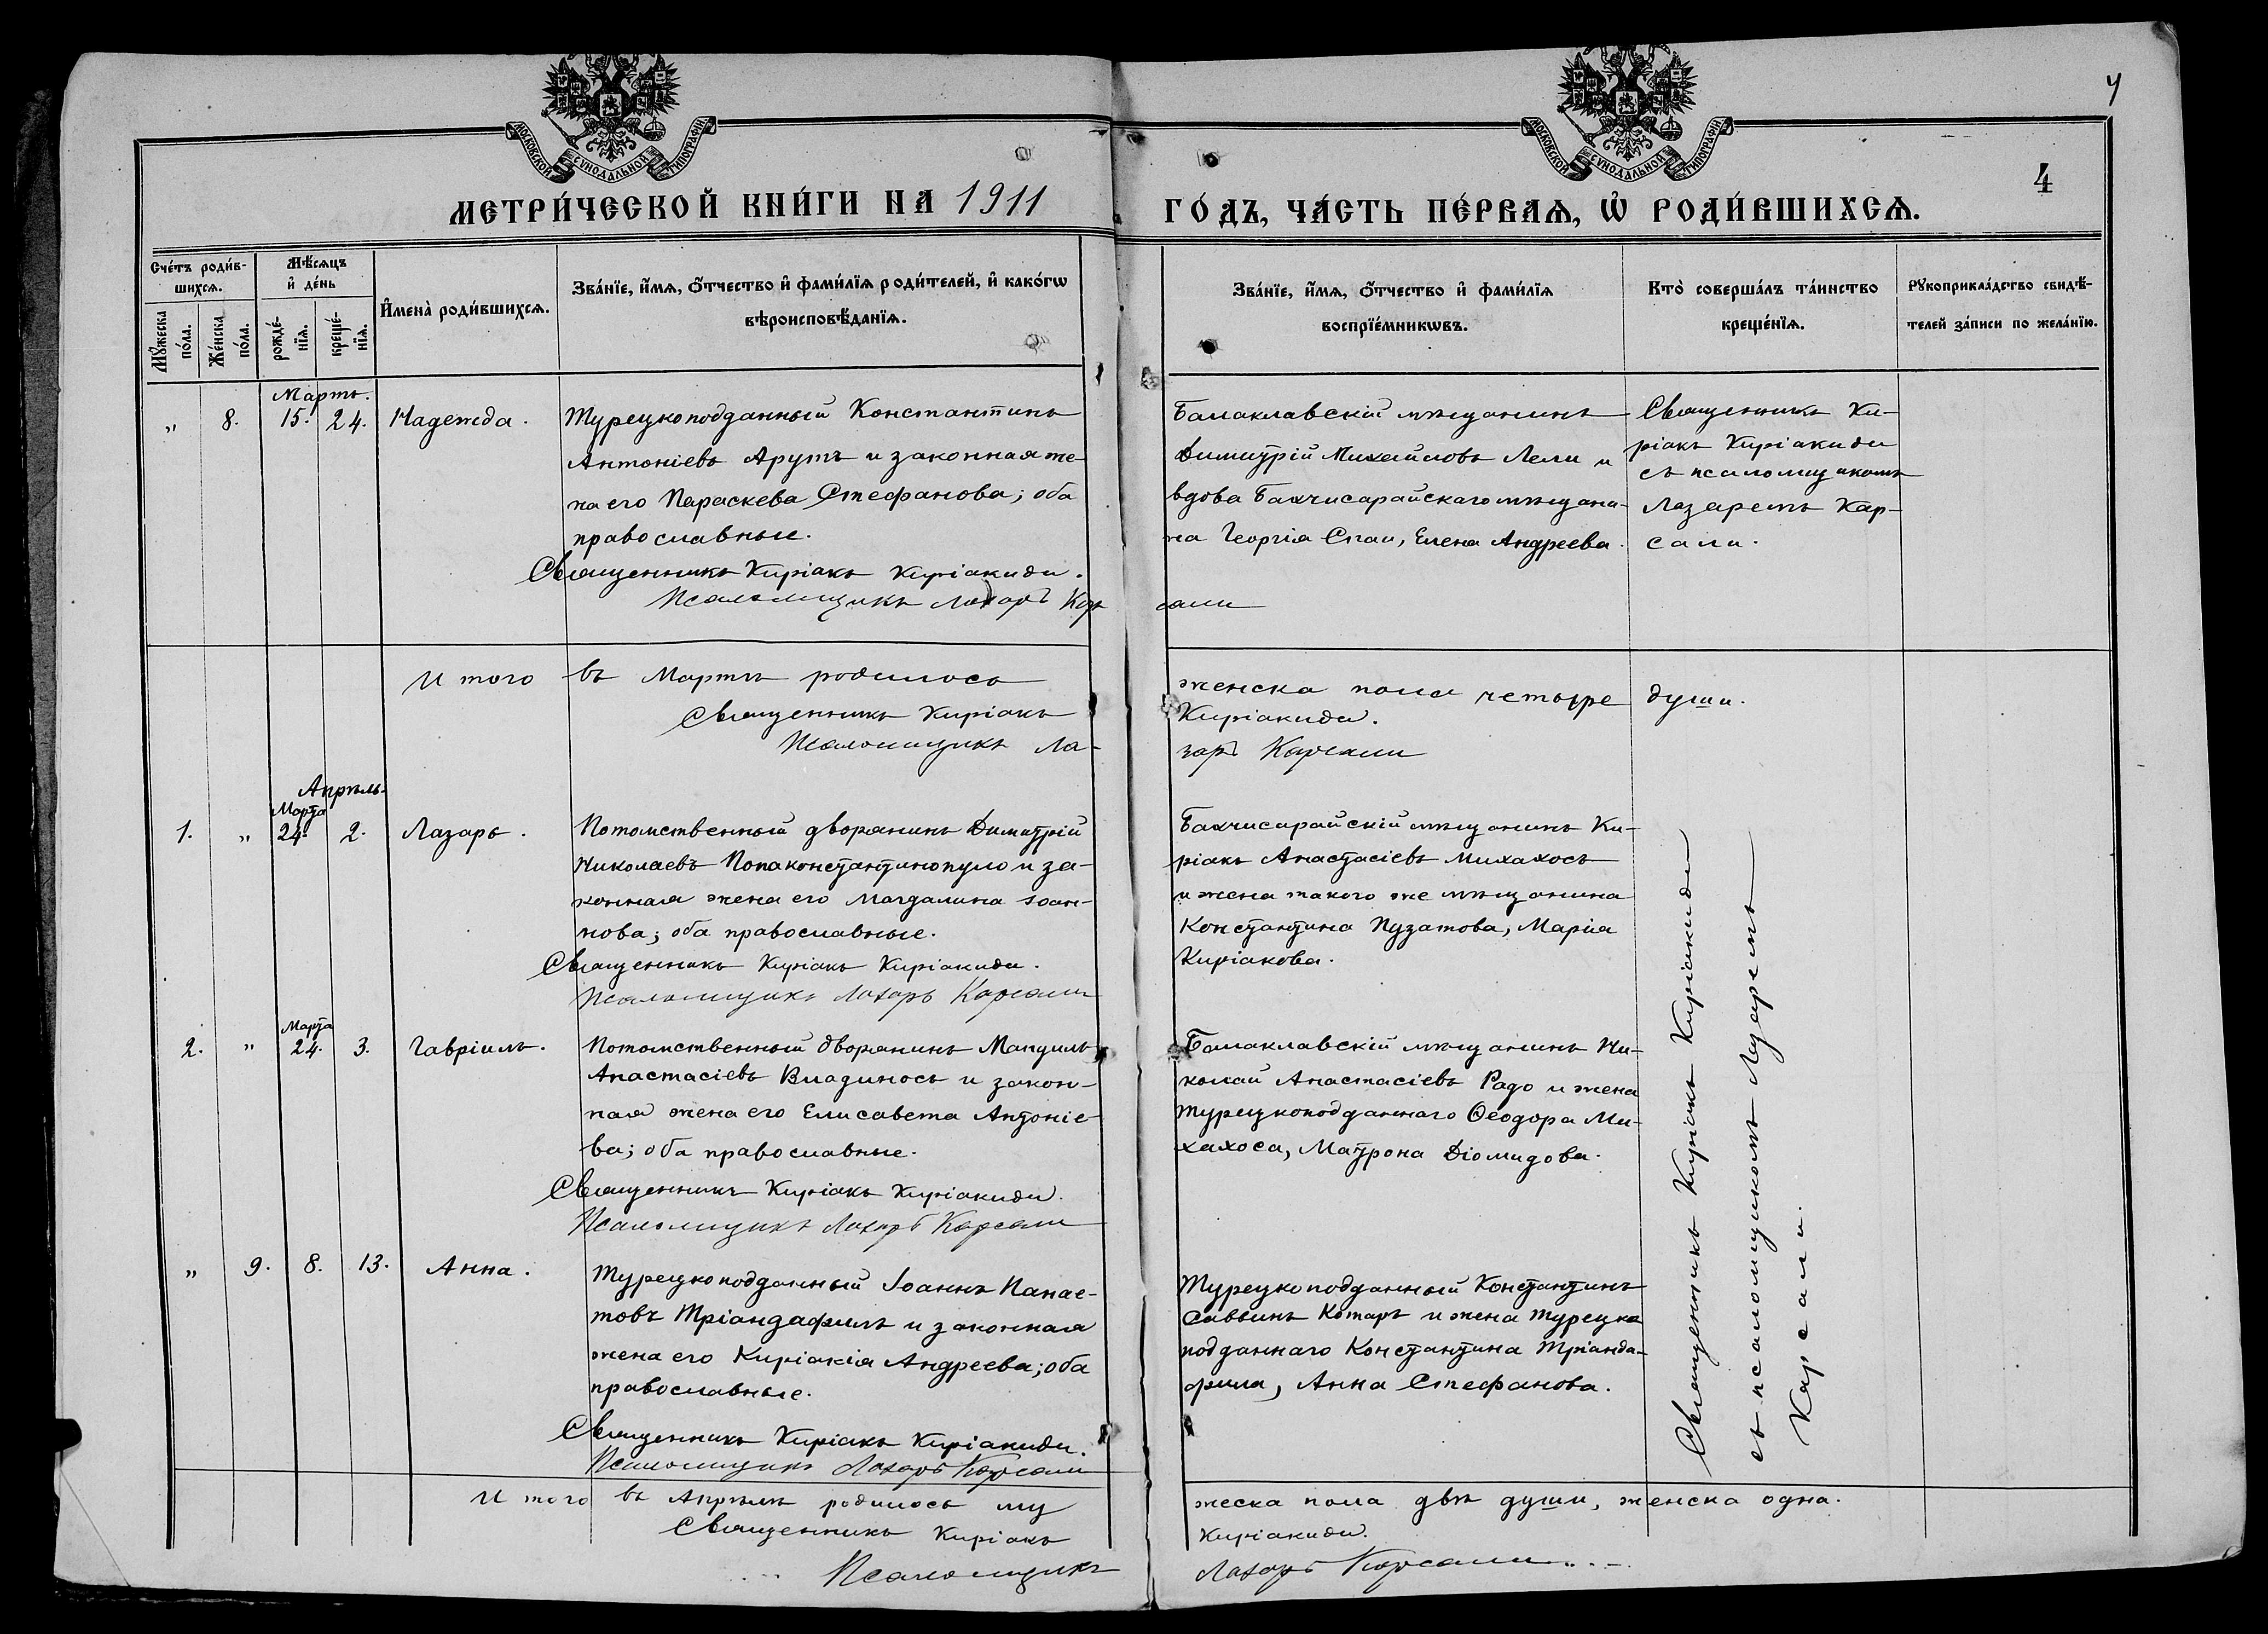 МОСКОВСКОЙ СѴНОДАЛЬНОЙ ТИПОГРАФІИ
МОСКОВСКОЙ СѴНОДАЛЬНОЙ ТИПОГРАФІИ
4
4
МЕТРИ́ЧЕСКОЙ КНИ́ГИ НА 1911
ГО́ДЪ, ЧА́СТЬ ПЕ́РВАѦ, Ѡ҆ РОДИ́ВШИХСѦ.
Сче́тъ роди́в-
шихсѧ.
Мꙋ́жеска
по́ла.
Же́нска
по́ла.
Мѣ́сѧцъ
и҆ де́нь
рожде́-
нїѧ.
креще́-
нїѧ.
И҆мена̀ роди́вшихсѧ.
Зва́нїе, и҆́мѧ, ѻ҆́тчество и҆ фами́лїѧ роди́телей, и҆ како́гѡ
вѣроисповѣ́данїѧ.
Зва́нїе, и҆́мѧ, ѻ҆́тчество и҆ фами́лїѧ
воспрїе́мникѡвъ.
Кто̀ соверша́лъ та́инство
креще́нїѧ.
Рꙋкоприкла́дство свидѣ́-
телей за́писи по жела́нїю.
Мартъ.
„ 8. 15. 24. Надежда.
Турецкоподданный Константинъ
Антоніевъ Арутъ и законная же-
на его Параскева Стефанова; оба
православные.
Священникъ Киріакъ Киріакиди.
Псаломщикъ Лазарь Кар
Балаклавскій мѣщанинъ
Димитрій Михайловъ Лели и
вдова Бахчисарайскаго мѣщани-
на Георгія Спаи, Елена Андреева.
сали
Священникъ Ки-
ріакъ Киріакиди
съ псаломщикомъ
Лазаремъ Кар-
сали.
Итого въ Мартѣ родилось
женска пола четыре души.
Священникъ Киріакъ
Киріакиди.
Псаломщикъ Ла-
зарь Карсали
Апрѣль.
Марта
1. „ 24. 2. Лазарь.
Потомственный дворянинъ Димитрій
Николаевъ Попаконстантинопуло и за-
конная жена его Магдалина Іоан-
нова; оба православные.
Священникъ Киріакъ Киріакиди.
Псаломщикъ Лазарь Карсали
Бахчисарайскій мѣщанинъ Ки-
ріакъ Анастасіевъ Михахосъ
и жена такого же мѣщанина
Константина Пузатова, Марія
Киріакова.
Марта
2. „ 24. 3. Гавріилъ.
Потомственный дворянинъ Мануилъ
Анастасіевъ Владиносъ и закон-
ная жена его Елисавета Антоніе-
ва; оба православные.
Священникъ Киріакъ Киріакиди.
Псаломщикъ Лазарь Карсали
Балаклавскій мѣщанинъ Ни-
колай Анастасіевъ Радо и жена
турецкоподданнаго Ѳеодора Ми-
хахоса, Матрона Діомидова.
„ 9. 8. 13. Анна.
Турецкоподданный Іоаннъ Панае-
товъ Тріандафилъ и законная
жена его Киріакія Андреева; оба
православные.
Священникъ Киріакъ Киріакиди.
Псаломщикъ Лазарь Карсали
Турецкоподданный Константинъ
Саввинъ Котаръ и жена турецко
подданнаго Константина Тріанда-
фила, Анна Стефанова.
Священникъ Киріакъ Киріакиди
съ псаломщикомъ Лазаремъ
Карсали.
Итого въ Апрѣлѣ родилось му
жеска пола двѣ души, женска одна.
Священникъ Киріакъ
Киріакиди.
Псаломщикъ
Лазарь Карсали